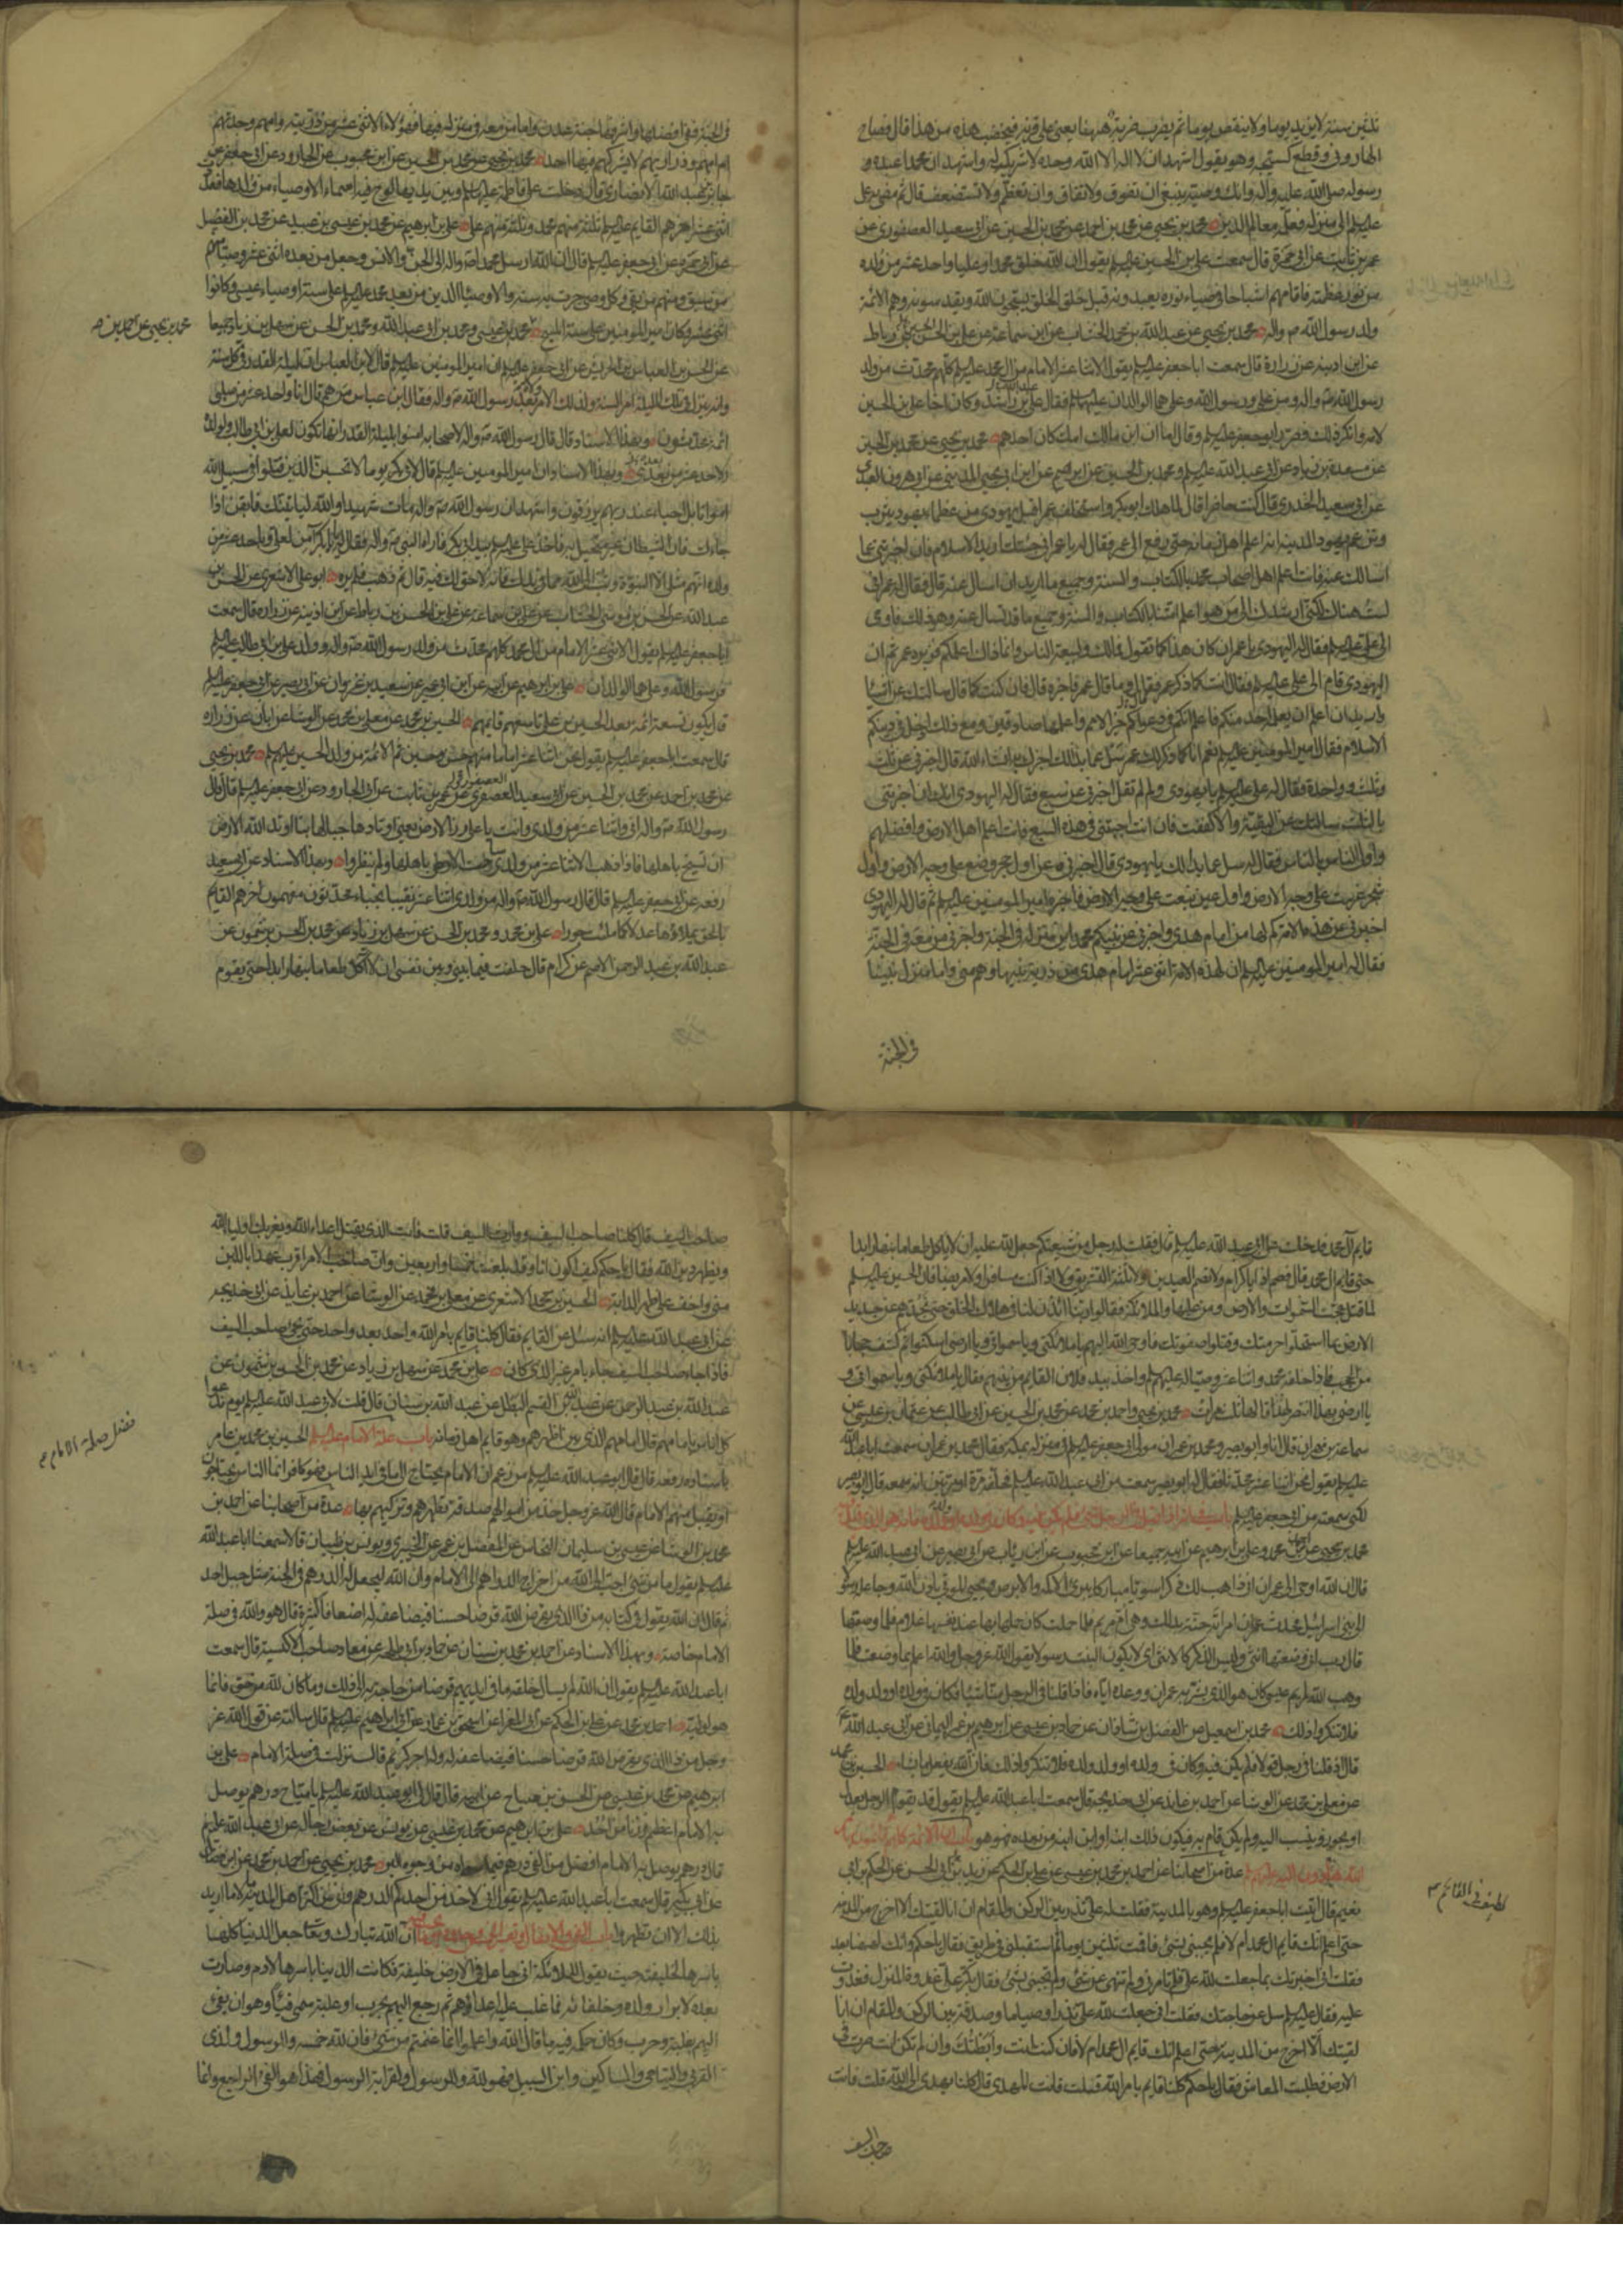 ثلثين سنة لا يزيد يوما ولا ينقص يوما ثم يضرب ضربة هيهنا يعني على قرنه فيخضب هذه من هذا قال فصاح
الهاروني وقطع كستيجه وهو يقول اشهد ان لا اله الا الله وحده لا شريك له واشهد ان محمدا عبده و
رسوله صلى الله عليه واله وانك وصيه ينبغي ان تفوق ولا تفاق وان تعظم ولا تستضعف قال ثم مضى به علي
عليه السلم الى منزله فعلمه معالم الدين محمد بن يحيى عن محمد بن احمد عن محمد بن الحسين عن ابي سعيد العصفوري عن
عمر بن ثابت عن ابي حمزة قال سمعت علي بن الحسين عليه السلم يقول ان الله خلق محمدا وعليا واحد عشر من ولده
من نور عظمته فاقامهم اشباحا في ضياء نوره يعبدونه قبل خلق الخلق يسبحون الله ويقدسونه وهم الائمة
ولد رسول الله ص واله محمد بن يحيى عن عبد الله بن محمد الخشاب عن ابن سماعة عن علي بن الحسن بن رباط
عن ابن اذينه عن زرارة قال سمعت ابا جعفر عليه السلم يقول الاثنا عشر الامام من ال محمد عليهم السلم كلهم محدث من ولد
رسول الله ص واله ومن علي ورسول الله وعلي هما الوالدان عليهما السلم فقال علي بن راشد وكان اخا علي بن الحسين
لامه وانكر ذلك فصرر ابو جعفر عليه السلم وقال اما ان ابن امك كان احدهم محمد بن يحيى عن محمد بن الحسين
عن مسعدة بن زياد عن ابي عبد الله عليه السلم ومحمد بن الحسين عن ابراهيم عن ابن ابي يحيى المدني عن ابي هرون العبدي
عن ابي سعيد الخدري قال كنت حاضرا لما هلك ابو بكر واستخلف عمر اقبل يهودي من عظماء يهود يثرب
وتزعم يهود المدينة انه اعلم اهل زمانه حتى رفع الى عمر فقال له يا عمر اني جئتك اريد الاسلام فان اخبرتني عما
اسالك عنه فانت اعلم اهل اصحاب محمد بالكتاب والسنة وجميع ما اريد ان اسال عنه قال فقال له عمر اني
لست هناك لكني ارشدك الى من هو اعلم امتنا بالكتاب والسنة وجميع ما قد تسال عنه وهو ذلك فاومى
الى علي عليه السلم فقال له اليهودي يا عمر ان كان هذا كما تقول فمالك ولبيعة الناس وانما ذاك اعلمكم فزبره عمر ثم ان
اليهودي قام الى علي عليه السلم فقال انت كما ذكر عمر فقال وما قال عمر فاخبره قال فان كنت كما قال سالتك عن اشيا
اريد ان اعلم ان يعلمه احد منكم فاعلم انكم في دعواكم خير الامم واعلمها صادقين ومع ذلك ادخل في دينكم
الاسلام فقال امير المومنين عليه السلم نعم انا كما ذكر لك عمر سل عما بدا لك اخبرك به انشاء الله قال اخبرني عن ثلث
وثلث وواحدة فقال له علي عليه السلم يا يهودي ولم لم تقل اخبرني عن سبع فقال له اليهودي انك ان اخبرتني
بالثلث سالتك عن البقية والا كففت فان انت اجبتني في هذه السبع فانت اعلم اهل الارض وافضلهم
واولى الناس بالناس فقال له سل عما بدا لك يا يهودي قال اخبرني عن اول حجر وضع على وجه الارض واول
شجرة غرست على وجه الارض واول عين نبعت على وجه الارض فاخبره امير المومنين عليه السلم ثم قال له اليهودي
اخبرني عن هذه الامة كم لها من امام هدى واخبرني عن نبيكم محمد اين منزله في الجنة واخبرني من معه في الجنة
فقال له امير المومنين عليه السلم ان لهذه الامة اثنى عشر امام هدى من ذرية نبيها وهم مني واما منزل نبينا
في الجنة
في الجنة ففي افضلها واشرفها جنة عدن واما من معه في منزله فيها فهؤلاء الاثنى عشر من ذريته وامهم وجدتهم
ام امهم وذراريهم لا يشركهم فيها احد محمد بن يحيى عن محمد بن الحسين عن ابن محبوب عن ابي الجارود عن ابي جعفر عن
جابر بن عبد الله الانصاري قال دخلت على فاطمة عليها السلم وبين يديها لوح فيه اسماء الاوصياء من ولدها فعددت
اثنى عشر اخرهم القايم عليه السلم ثلثة منهم محمد وثلثة منهم علي علي بن ابرهيم عن محمد بن عيسى بن عبيد عن محمد بن الفضيل
عن ابي حمزة عن ابي جعفر عليه السلم قال ان الله ارسل محمدا ص واله الى الجن والانس وجعل من بعده اثنى عشر وصيا منهم
من سبق ومنهم من بقي وكل وصي جرت به سنة والاوصياء الذين من بعد محمد عليهم السلم على سنة اوصياء عيسى وكانوا
اثنى عشر وكان امير المومنين على سنة المسيح محمد بن يحيى ومحمد بن ابي عبد الله ومحمد بن الحسن عن سهل بن زياد جميعا
محمد بن يحيى عن احمد بن محمد
عن الحسن بن العباس بن الحريش عن ابي جعفر عليه السلم ان امير المومنين عليه السلم قال لابن العباس ان ليلة القدر في كل سنة
وانه ينزل في تلك الليلة امر السنة ولذلك الامر ولاة بعد رسول الله ص واله فقال ابن عباس من هم قال انا واحد عشر من صلبي
ائمة محدثون وبهذا الاسناد قال قال رسول الله ص واله لاصحابه امنوا بليلة القدر انها تكون لعلي بن ابي طالب ولولده
الاحد عشر من بعدي وبهذا الاسناد ان امير المومنين عليه السلم قال لابي بكر يوما لا تحسبن الذين قتلوا في سبيل الله
امواتا بل احياء عند ربهم يرزقون واشهد ان رسول الله ص واله مات شهيدا والله ليأتينك فايقن اذا
جاءك فان الشيطان غير متخيل به فاخذ علي عليه السلم بيد ابي بكر فاراه النبي ص واله فقال له يا ابا بكر آمن بعلي وباحد عشر من
ولده انهم مثلي الا النبوة وتب الى الله مما في يدك فانه لا حق لك فيه قال ثم ذهب فلم يره ابو علي الاشعري عن الحسن بن
عبد الله عن الحسن بن موسى الخشاب عن علي بن سماعة عن علي بن الحسن بن رباط عن ابن اذينه عن زرارة قال سمعت
ابا جعفر عليه السلم يقول الاثنى عشر الامام من ال محمد كلهم محدث من ولد رسول الله ص واله وولد علي بن ابي طالب عليه السلم
فرسول الله وعلي هما الوالدان علي بن ابرهيم عن ابيه عن ابن ابي عمير عن سعيد بن غزوان عن ابي بصير عن ابي جعفر عليه السلم
قال يكون تسعة ائمة بعد الحسين بن علي تاسعهم قائمهم الحسين بن محمد عن معلى بن محمد عن الوشا عن ابان عن زرارة
قال سمعت ابا جعفر عليه السلم يقول نحن اثنا عشر اماما منهم حسن وحسين ثم الائمة من ولد الحسين عليهم السلم محمد بن يحيى
عن محمد بن احمد عن محمد بن الحسين عن ابي سعيد العصفري عن عمر بن ثابت عن ابي الجارود عن ابي جعفر عليه السلم قال قال
رسول الله ص واله اني واثنا عشر من ولدي وانت يا علي زر الارض يعني اوتادها جبالها بنا اوتد الله الارض
ان تسيخ باهلها فاذا ذهب الاثنا عشر من ولدي ساخت الارض باهلها ولم ينظروا وبهذا الاسناد عن ابي سعيد
رفعه عن ابي جعفر عليه السلم قال قال رسول الله ص واله من ولدي اثنا عشر نقيبا نجباء محدثون مفهمون اخرهم القايم
بالحق يملاؤها عدلا كما ملئت جورا علي بن محمد ومحمد بن الحسن عن سهل بن زياد عن محمد بن الحسن بن شمون عن
عبد الله بن عبد الرحمن الاصم عن كرام قال حلفت فيما بيني وبين نفسي ان لا آكل طعاما بنهار ابدا حتى يقوم
قايم آل محمد فدخلت على ابي عبد الله عليه السلم قال فقلت له رجل من شيعتكم جعل لله عليه ان لا ياكل طعاما بنهار ابدا
حتى قايم ال محمد قال فصم اذا يا كرام ولا تصم العيدين ولا ثلثة التشريق ولا اذا كنت مسافرا ولا مريضا فان الحسين عليه السلم
لما قتل عجت السموات والارض ومن عليها والملائكة فقالوا يا ربنا ائذن لنا في هلاك الخلق حتى نجدهم عن جديد
الارض بما استحلوا حرمتك وقتلوا صفوتك فاوحى الله اليهم يا ملائكتي ويا سمواتي ويا ارضي اسكنوا ثم كشف حجابا
من الحجب فاذا خلفه محمد واثنا عشر وصيا له عليهم السلم واخذ بيد فلان القايم من بينهم فقال يا ملائكتي ويا سمواتي و
يا ارضي بهذا انتصر لهذا قالها ثلث مرات محمد بن يحيى واحمد بن محمد عن محمد بن الحسين عن ابي طالب عن عثمان بن عيسى عن
سماعة بن مهران قال كنا وابو بصير ومحمد بن عمران مولى ابي جعفر عليه السلم في منزله بمكة فقال محمد بن عمران سمعت ابا عبد الله
عليه السلم يقول نحن اثنا عشر محدثا فقال له ابو بصير سمعت من ابي عبد الله عليه السلم فحلفه مرة او مرتين انه سمعه قال ابو بصير
لكني سمعته من ابي جعفر عليه السلم باب في انه اذا قيل في الرجل شيء فلم يكن فيه وكان في ولده او ولد ولده فانه هو الذي قيل فيه
محمد بن يحيى عن احمد بن محمد وعلي بن ابرهيم عن ابيه جميعا عن ابن محبوب عن ابن رئاب عن ابي بصير عن ابي عبد الله عليه السلم
قال ان الله اوحى الى عمران اني واهب لك ذكرا سويا مباركا يبرئ الاكمه والابرص ويحيي الموتى باذن الله وجاعله رسولا
الى بني اسرائيل فحدث عمران امراته حنة بذلك وهي ام مريم فلما حملت كان حملها بها عند نفسها غلام فلما وضعتها
قالت رب اني وضعتها انثى وليس الذكر كالانثى اي لا يكون البنت رسولا يقول الله عز وجل والله اعلم بما وضعت فلما
وهب الله لمريم عيسى كان هو الذي بشر به عمران ووعده اياه فاذا قلنا في الرجل منا شيئا فكان في ولده او ولد ولده
فلا تنكروا ذلك محمد بن اسمعيل عن الفضل بن شاذان عن حماد بن عيسى عن ابرهيم بن عمر اليماني عن ابي عبد الله ع
قال اذا قلنا في رجل قولا فلم يكن فيه وكان في ولده او ولد ولده فلا تنكروا ذلك فان الله يفعل ما يشاء الحسين بن محمد
عن معلى بن محمد عن الوشا عن احمد بن عايذ عن ابي خديجة قال سمعت ابا عبد الله عليه السلم يقول قد يقوم الرجل بعدل
او يجور وينسب اليه ولم يكن قام به فيكون ذلك ابنه او ابن ابنه من بعده فهو هو باب ان الائمة كلهم قائمون بامر
الله هادون اليه عليهم السلم عدة من اصحابنا عن احمد بن محمد بن عيسى عن علي بن الحكم عن زيد بن ابي الحسن عن الحكم بن ابي
نعيم قال اتيت ابا جعفر عليه السلم وهو بالمدينة فقلت له علي نذر بين الركن والمقام ان انا لقيتك الا اخرج من المدينة
حتى اعلم انك قايم ال محمد ام لا فلم يجبني بشيء فاقمت ثلثين يوما ثم استقبلني في طريق فقال يا حكم وانك لههنا بعد
فقلت اني اخبرتك بما جعلت لله علي فلم تامرني ولم تنهني عن شيء ولم تجبني بشيء فقال بكر علي غدوة المنزل فغدوت
عليه فقال عليه السلم سل عن حاجتك فقلت اني جعلت لله علي نذرا وصياما وصدقة بين الركن والمقام ان انا
لقيتك الا اخرج من المدينة حتى اعلم انك قايم ال محمد ام لا فان كنت انت رابطتك وان لم تكن انت سرت في
الارض فطلبت المعاش فقال يا حكم كلنا قايم بامر الله قلت فانت المهدي قال كلنا نهدي الى الله قلت فانت
صاحب السيف
صاحب السيف قال كلنا صاحب السيف ووارث السيف قلت فانت الذي يقتل اعداء الله ويعز بك اولياء الله
ويظهر دين الله فقال يا حكم كيف اكون انا وقد بلغت خمسا واربعين وان صاحب الامر اقرب عهدا باللبن
مني واخف على ظهر الدابة الحسين بن محمد الاشعري عن معلى بن محمد عن الوشا عن احمد بن عايذ عن ابي خديجة
عن ابي عبد الله عليه السلم انه سئل عن القايم فقال كلنا قايم بامر الله واحد بعد واحد حتى يجئ صاحب السيف
فاذا جاء صاحب السيف جاء بامر غير الذي كان علي بن محمد عن سهل بن زياد عن محمد بن الحسن بن شمون عن
عبد الله بن عبد الرحمن عن عبد الله بن القسم البطل عن عبد الله بن سنان قال قلت لابي عبد الله عليه السلم يوم ندعوا
كل اناس بامامهم قال امامهم الذي بين اظهرهم وهو قايم اهل زمانه باب صلة الامام عليه السلم الحسين بن محمد بن عامر
فضل صلة الامام ع
باسناده رفعه قال قال ابو عبد الله عليه السلم من زعم ان الامام يحتاج الى ما في ايدي الناس فهو كافر انما الناس يحتاجون
ان يقبل منهم الامام قال الله عز وجل خذ من اموالهم صدقة تطهرهم وتزكيهم بها عدة من اصحابنا عن احمد بن
محمد بن الوشا عن عيسى بن سليمان النحاس عن المفضل بن عمر عن الخيبري ويونس بن ظبيان قالا سمعنا ابا عبد الله
عليه السلم يقول ما من شيء احب الى الله من اخراج الدراهم الى الامام وان الله ليجعل له الدرهم في الجنة مثل جبل احد
ثم قال ان الله يقول في كتابه من ذا الذي يقرض الله قرضا حسنا فيضاعفه له اضعافا كثيرة قال هو والله في صلة
الامام خاصة وبهذا الاسناد عن احمد بن محمد بن سنان عن حماد بن ابي طلحة عن معاذ صاحب الاكسية قال سمعت
ابا عبد الله عليه السلم يقول ان الله لم يسال خلقه ما في ايديهم قرضا من حاجة به الى ذلك وما كان لله من حق فانما
هو لوليه احمد بن محمد عن علي بن الحكم عن ابي المغرا عن اسحق بن عمار عن ابي ابراهيم عليه السلم قال سالته عن قول الله عز
وجل من ذا الذي يقرض الله قرضا حسنا فيضاعفه له وله اجر كريم قال نزلت في صلة الامام علي بن
ابرهيم عن محمد بن عيسى عن الحسن بن مياح عن ابيه قال قال لي ابو عبد الله عليه السلم يا مياح درهم يوصل
به الامام اعظم وزنا من احد علي بن ابرهيم عن محمد بن عيسى عن يونس عن بعض رجاله عن ابي عبد الله عليه السلم
قال درهم يوصل به الامام افضل من الفي درهم فيما سواه من وجوه البر محمد بن يحيى عن احمد بن محمد عن ابن فضال
عن ابن بكير قال سمعت ابا عبد الله عليه السلم يقول اني لاخذ من احدكم الدرهم واني من اكثر اهل المدينة مالا ما اريد
بذلك الا ان تطهروا باب الفيء والانفال وتفسير الخمس وحدوده وما يجب فيه ان الله تبارك وتعا جعل الدنيا كلها
باسرها لخليفته حيث يقول للملائكة اني جاعل في الارض خليفة فكانت الدنيا باسرها لادم وصارت
بعده لابرار ولده وخلفائه فما غلب عليه اعداؤهم ثم رجع اليهم بحرب او غلبة سمي فيئا وهو ان يفئ
اليهم بغلبة وحرب وكان حكمه فيه ما قال الله واعلموا انما غنمتم من شيء فان لله خمسه وللرسول ولذي
القربى واليتامى والمساكين وابن السبيل فهو لله وللرسول ولقرابة الرسول فهذا هو الفئ الراجع وانما